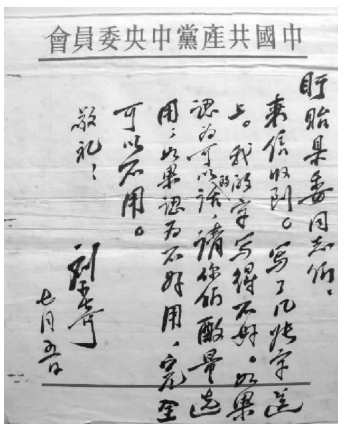 中國共產黨中央委員會
盱眙县委同志们：
来信收到。写了几张字送
上。我的字写得不好。如果
認为可以话，请你们酌量选
用；如果認为不好用，完全
可以不用。
敬礼！
刘少奇
七月五日